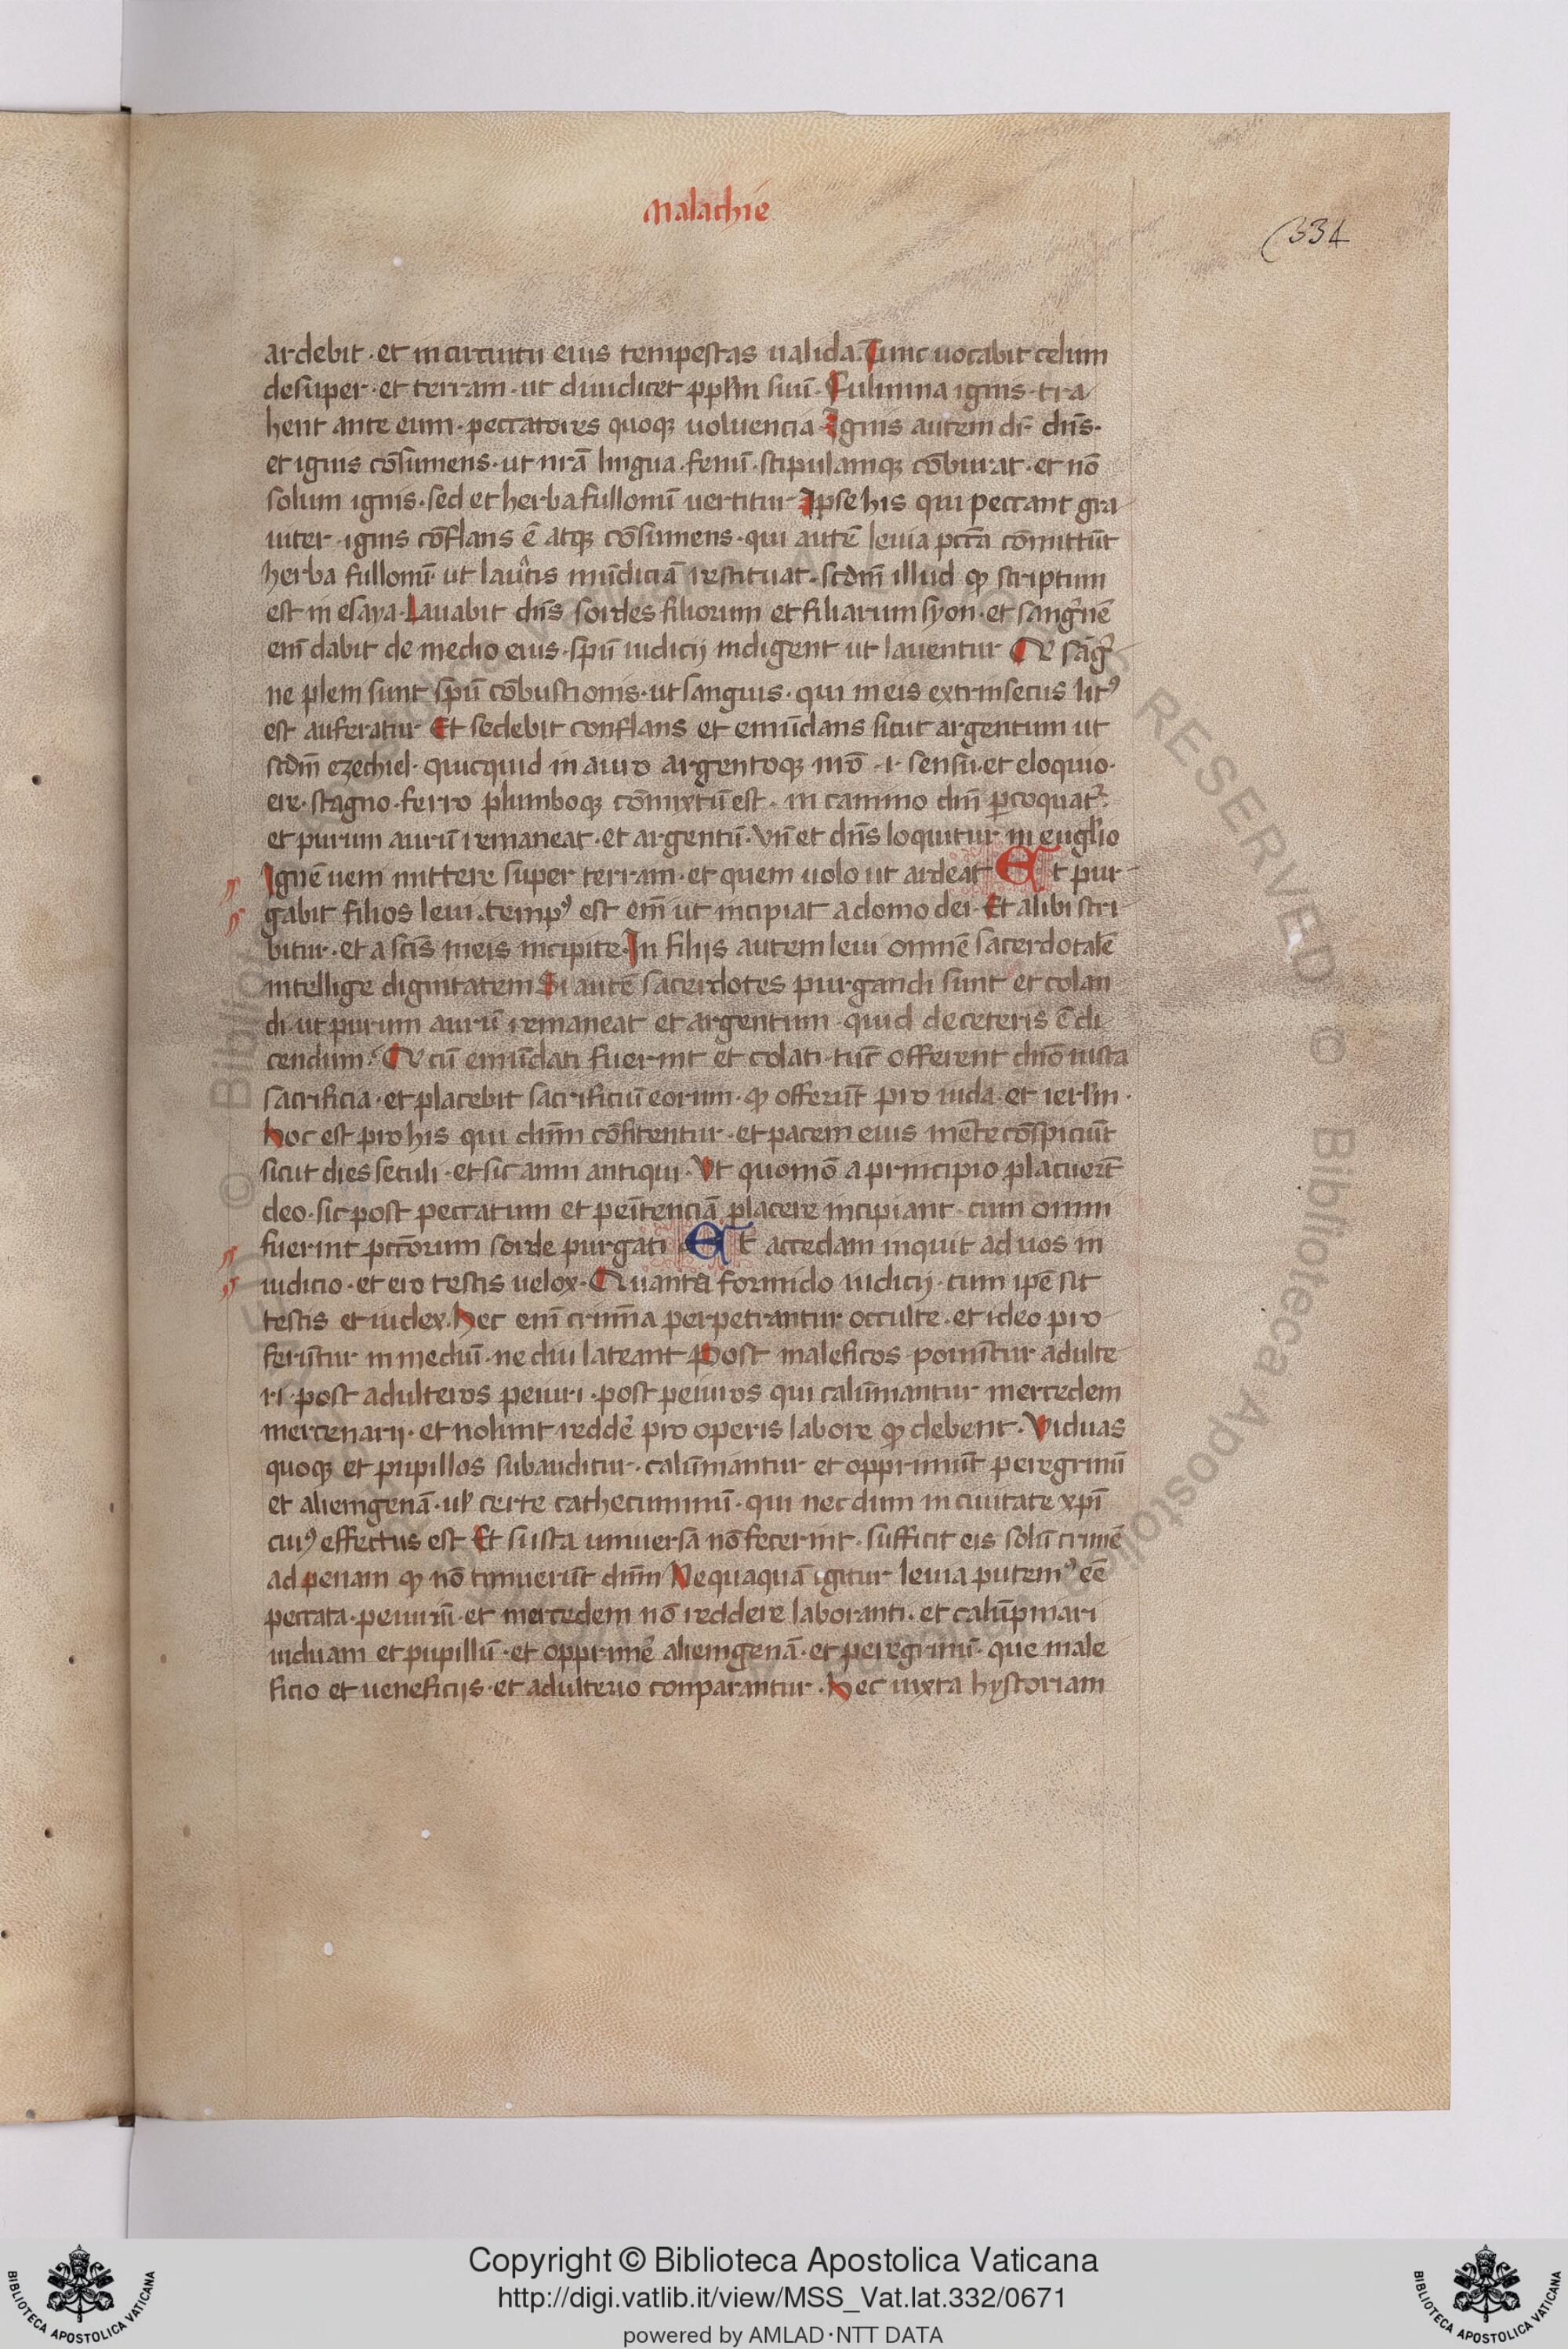 Malachie
334
ardebit · et in circuitu eius tempestas ualida. Tunc uocabit celum
desuper · et terram · ut diiudicet pplm suū · Fulmina ignis · tra
hent ante eum · peccatores quoqꝫ uoluencia · Ignis autem dr̄ dn̄s ·
et ignis cōsumens · ut nrā lingua · fenū · stipulamqꝫ cōburat · et nō
solum ignis · sed et herba fullonū uertitur Ipse his qui peccant gra
uiter · ignis cōflans ē atqꝫ cōsumens · qui autē leuia pctā cōmittūt
herba fullonū · ut lauatis mūdiciā restituat · scd̄m illud qꝫ scriptum
est in esaya · Lauabit dn̄s sordes filiorum et filiarum syon · et sanguinē
em̄ dabit de medio eius · spū iudicij indigent ut lauentur Qe sāg
ne plem sunt spū cōbustionis · ut sanguis · qui in eis extrinsecus litꝰ
est auferatur Et sedebit conflans et emūdans sicut argentum ut
scd̄m ezechiel · quicquid in auro argentoqꝫ nrō · i · sensu · et eloquio ·
ere · stagno · ferro plumboqꝫ cōmixtū est · in camino dn̄i ꝑcoquat᷑ ·
et purum aurū remaneat · et argentū · Vn̄ et dn̄s loquitur in euglio
Ignē ueni mittere super terram · et quem uolo ut ardeat Et pur
gabit filios leui · tempꝰ est em̄ ut incipiat a domo dei · Et alibi scri
bitur · et a scīs meis incipite · In filijs autem leui omnē sacerdotalē
intellige dignitatem Si autē sacerdotes purgandi sunt et colan
di · ut purum aurū remaneat et argentum · quid de ceteris ē di
cendum · Qe cū emūdati fuerint et colati · tūc offerent dn̄o iusta
sacrificia · et placebit sacrificiū eorum · qꝫ offerūt pro iuda · et ierl̄m ·
hoc est pro his qui dn̄m cōfitentur · et pacem eius mēte cōspiciūt
sicut dies seculi · et sic anni antiqui · Vt quomō a principio placuer̄t
deo · sic post peccatum et penītenciā placere incipiant · cum omni
fuerint pctōrum sorde purgati Et accedam inquit ad uos in
iudicio · et ero testis uelox · Quanta formido iudicij · cum ipē sit
testis et iudex. Hec em̄ crimīa perpetrantur occulte · et ideo pro
ferūtur in mediū · ne diu lateant Post maleficos ponūtur adulte
ri · post adulteros peiuri · post peiuros qui calūmantur mercedem
mercenarij · et nolunt reddē pro operis labore qꝫ debent · Viduas
quoqꝫ et pupillos subauditur · calūmantur et opprimūt peregrinū
et alienigenā · ul̄ certe cathecuminū · qui necdum in ciuitate xp̄i
ciuꝭ effectus est Et si ista uniuersa nō fecerint · sufficit eis solū crimē
ad penam qꝫ nō timuerūt dn̄m Nequaquā igitur leuia putemꝰ eē
peccata · peiuriū · et mercedem nō reddere laboranti · et calūpniari
uiduam et pupillū · et opprimē alienigenā · et peregrinū · que male
ficio et ueneficijs · et adulterio conparantur · Hec iuxta hystoriam
Copyright © Biblioteca Apostolica Vaticana
http://digi.vatlib.it/view/MSS_Vat.lat.332/0671
powered by AMLAD·NTT DATA
BIBLIOTECA APOSTOLICA VATICANA
BIBLIOTECA APOSTOLICA VATICANA